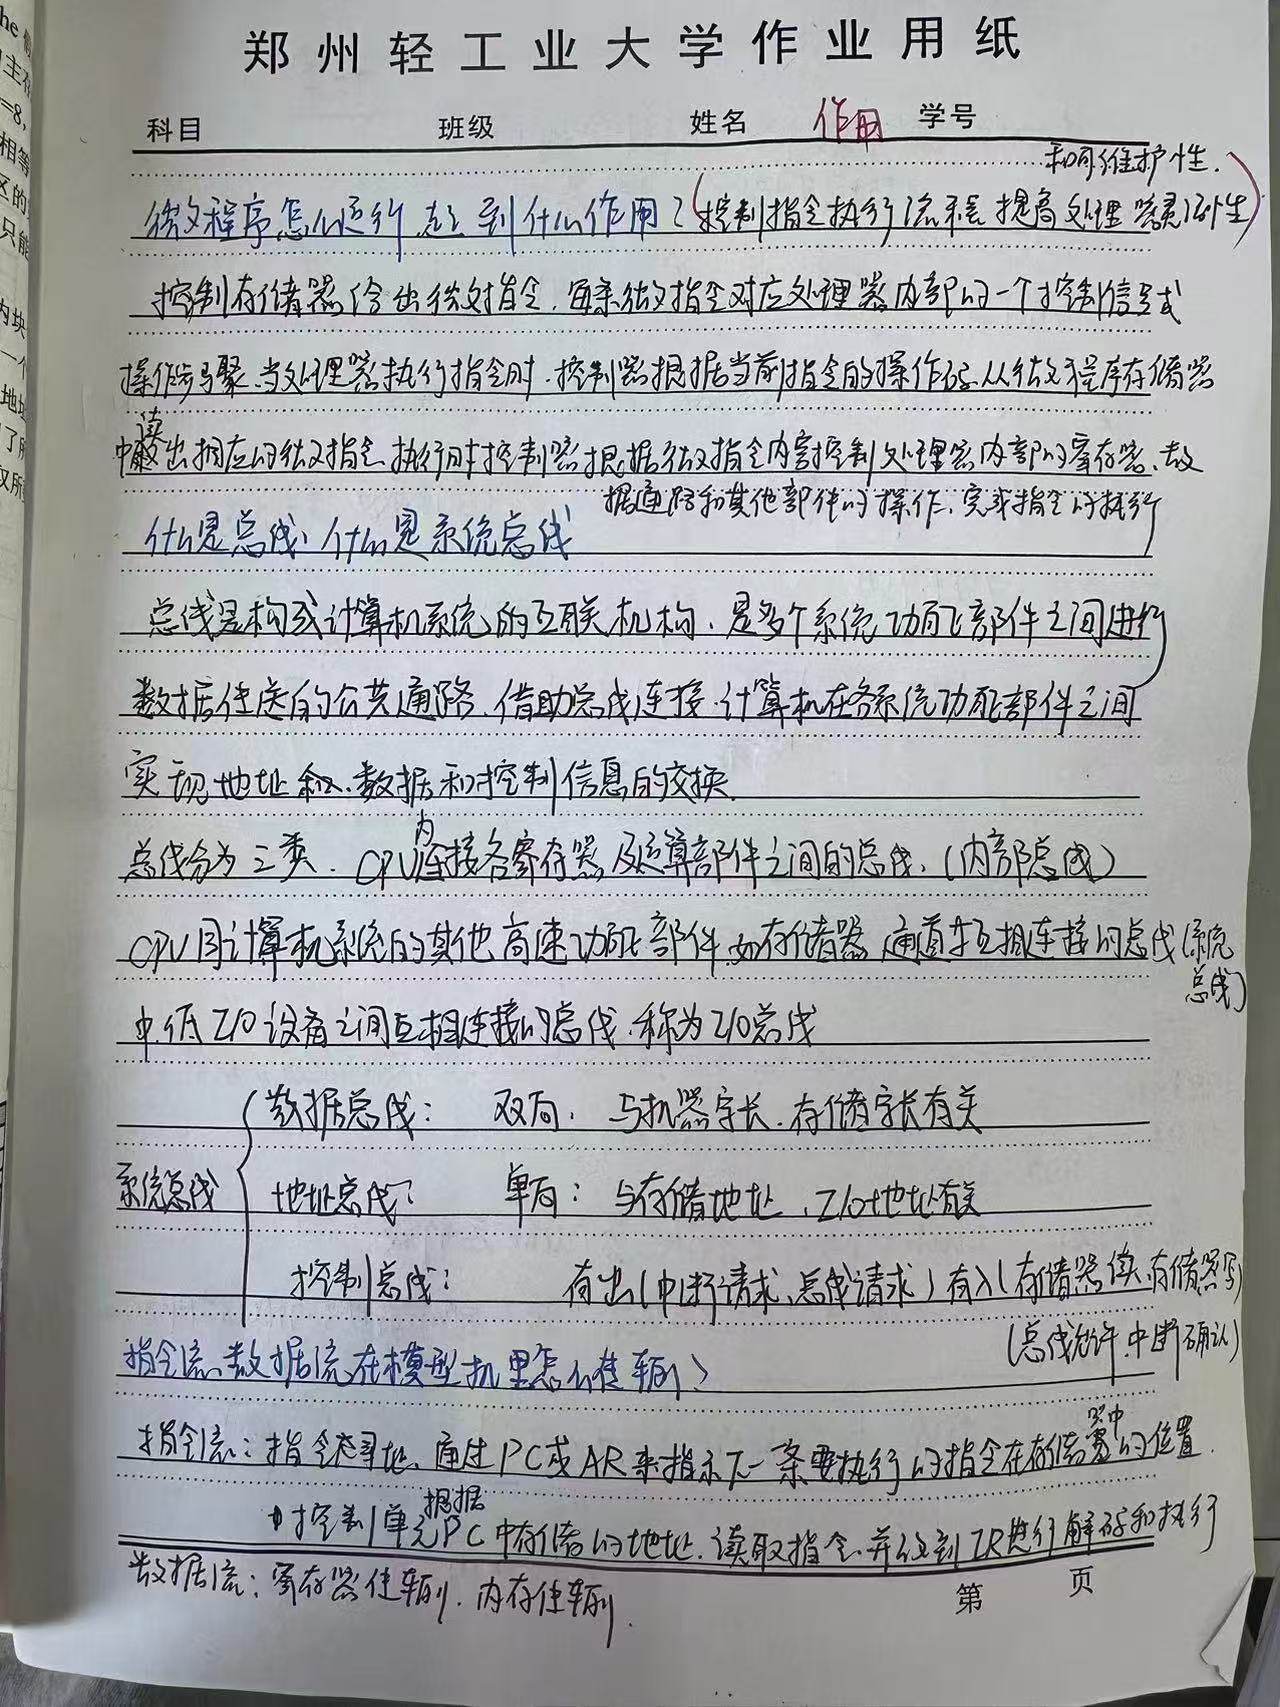 he
主存
=8,
相等
区的
只能
内块
一个
地址
了所
取所
郑州轻工业大学作业用纸
科目 班级 姓名 作用 学号
和可维护性.
微程序怎么运行,起到什么作用?(控制指令执行流程 提高处理器灵活性)
控制存储器给出微指令.每条微指令对应处理器内部的一个控制信号或
操作步骤.当处理器执行指令时.控制器根据当前指令的操作码.从微程序存储器
中读出相应的微指令.执行时控制器根据微指令内容控制处理器内部的寄存器、数
据通路和其他部件的操作,完成指令的执行
什么是总线,什么是系统总线
总线是构成计算机系统的互联机构.是多个系统功能部件之间进行
数据传送的公共通路.借助总线连接.计算机在各系统功能部件之间
实现地址和、数据和控制信息的交换.
总线分为三类. CPU内连接各寄存器及运算部件之间的总线.(内部总线)
CPU同计算机系统的其他高速功能部件.如存储器 通道等互相连接的总线(系统
总线)
中.低I/O设备之间互相连接的总线.称为I/O总线
系统总线
数据总线: 双向. 与机器字长.存储字长有关
地址总线: 单向: 与存储地址、I/O地址有关
控制总线: 有出(中断请求、总线请求)有入(存储器读、存储器写)
(总线允许.中断确认)
指令流.数据流在模型机里怎么传输?
指令流:指令寻址.通过PC或AR来指示下一条要执行的指令在存储器中的位置.
控制单元根据PC中存储的地址.读取指令.并送到IR进行解码和执行
数据流:寄存器传输.内存传输.
第 页